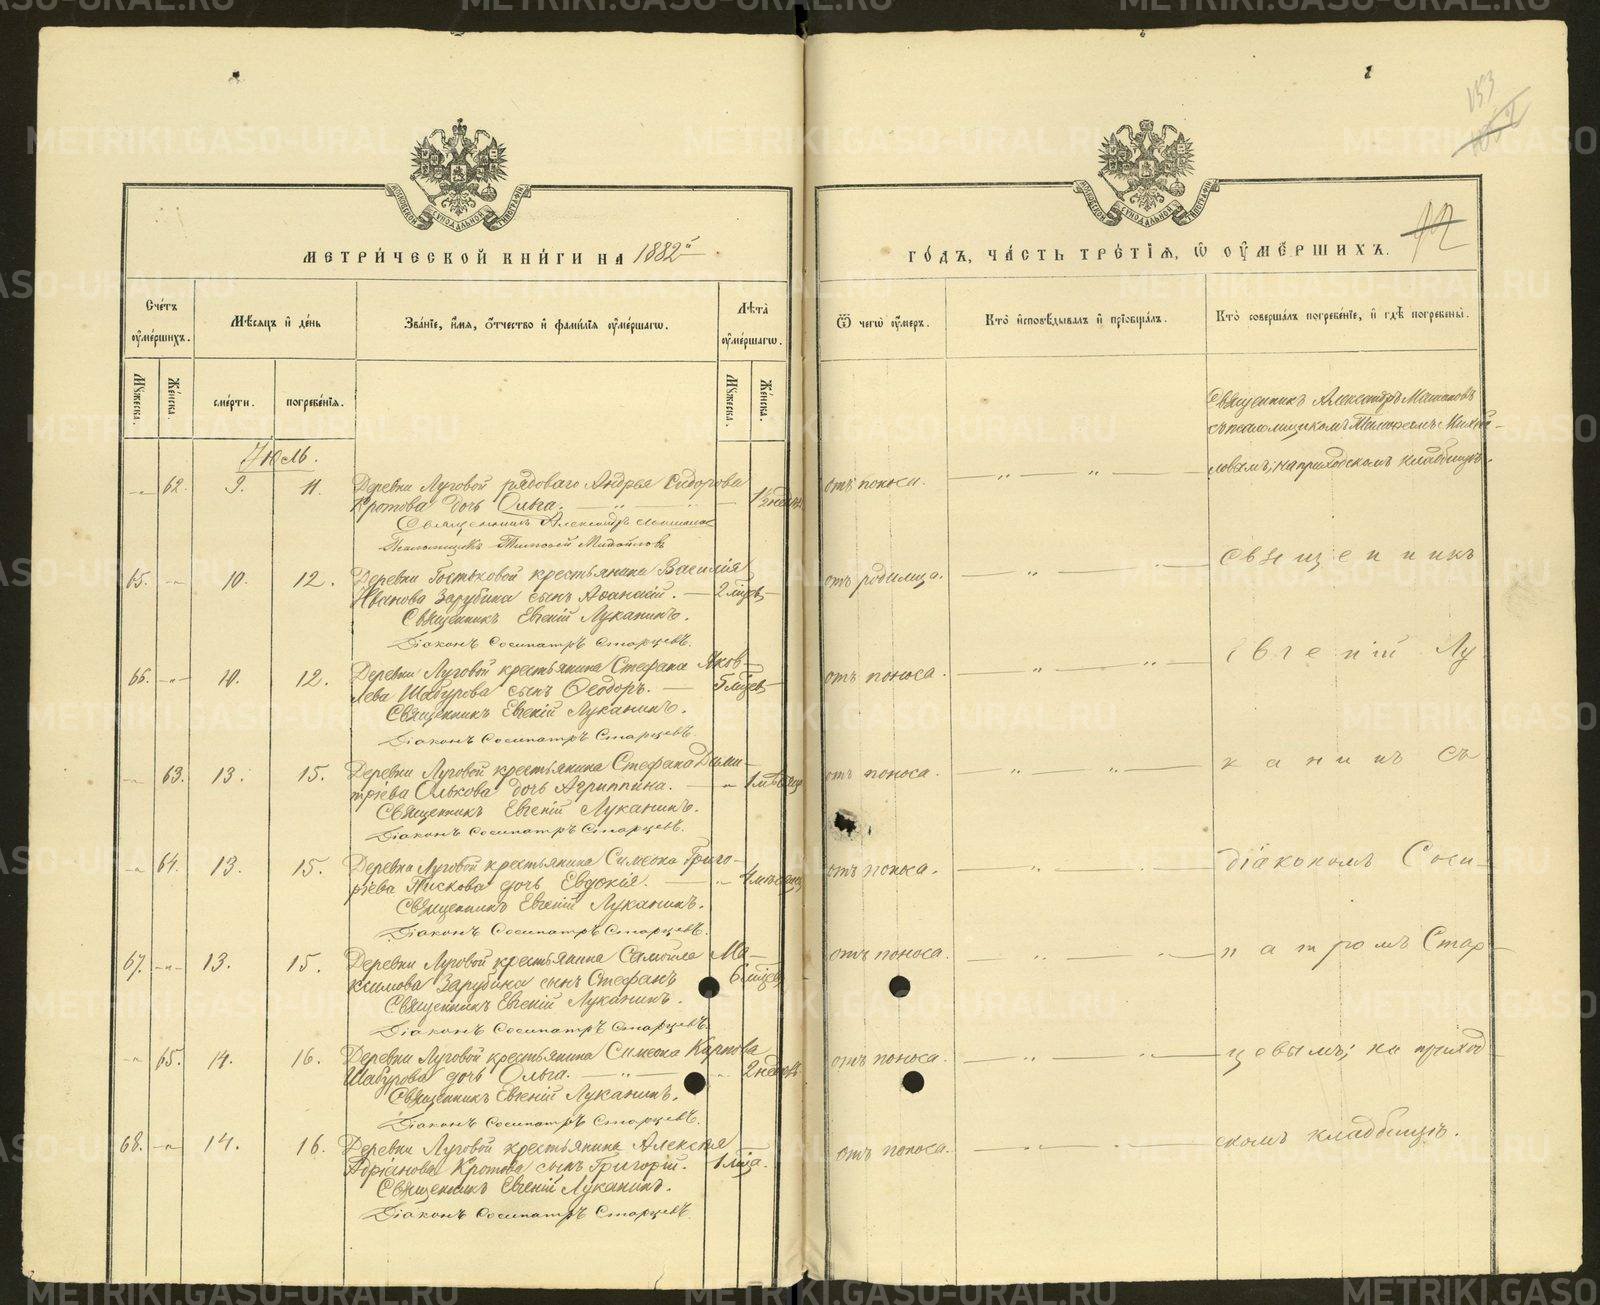 153
МЕТРИ́ЧЕСКОЙ КНИ́ГИ НА 1882й
ГО́ДЪ, ЧА́СТЬ ТРЕ́ТІЯ, Ѡ ОУМЕ́РШИХЪ.
Счетъ оумершихъ.
Мѣсяцъ и день
Званіе, имя, отчество и фамилія оумершагω.
Лѣта оумершагω.
Ѿ чегω оумеръ.
Кто исповѣдывалъ и пріобщалъ.
Кто совершалъ погребеніе, и гдѣ погребены.
Мужеска.
Женска.
смерти.
погребенія.
Мужеска.
Женска.
Священникъ Александръ
съ псаломщикомъ
ловымъ; на приходскомъ кладбищѣ.
Іюль.
-"- 62. 9. 11. Деревни Луговой рядоваго Андрея Сидорова
Кротова дочь Ольга. — " — " — 1½ недѣл. отъ поноса. — " — " —
Священникъ Александръ
Псаломщикъ Михайловъ
65. -"- 10. 12. Деревни Гостьковой крестьянина Василія
Иванова Зарубина сынъ Аѳанасій. — 2 мцев — отъ родимца. — " — " — Священникъ
Священникъ Евгеній Луканинъ.
Діаконъ Сосипатръ Старцевъ.
66. -"- 10. 12. Деревни Луговой крестьянина Стефана Яков-
лева Шабурова сынъ Ѳеодоръ. — 5 мцев — отъ поноса. — " — " — Евгеній Лу
Священникъ Евгеній Луканинъ.
Діаконъ Сосипатръ Старцевъ.
-"- 63. 13. 15. Деревни Луговой крестьянина Стефана Дими-
тріева Олькова дочь Агриппина. — " 1 мѣсяц отъ поноса. — " — " — канинъ съ
Священникъ Евгеній Луканинъ.
Діаконъ Сосипатръ Старцевъ.
-"- 64. 13. 15. Деревни Луговой крестьянина Симеона Григо-
рьева Пискова дочь Евдокія. — " 4 мѣсяц отъ поноса. — " — " — діакономъ Соси-
Священникъ Евгеній Луканинъ.
Діаконъ Сосипатръ Старцевъ.
67. -"- 13. 15. Деревни Луговой крестьянина Самойла Ма-
ксимова Зарубина сынъ Стефанъ 6 мцев отъ поноса. — " — " — патромъ Стар-
Священникъ Евгеній Луканинъ.
Діаконъ Сосипатръ Старцевъ.
-"- 65. 14. 16. Деревни Луговой крестьянина Симеона Карпова
Шабурова дочь Ольга. — " — " 2 недѣл. отъ поноса. — " — " — цевымъ; на приход-
Священникъ Евгеній Луканинъ.
Діаконъ Сосипатръ Старцевъ.
68. -"- 14. 16. Деревни Луговой крестьянина Алексея
Адріанова Кротова сынъ Григорій. 1 мца. отъ поноса. — " — " — скомъ кладбищѣ.
Священникъ Евгеній Луканинъ.
Діаконъ Сосипатръ Старцевъ.
METRIKI.GASO-URAL.RU